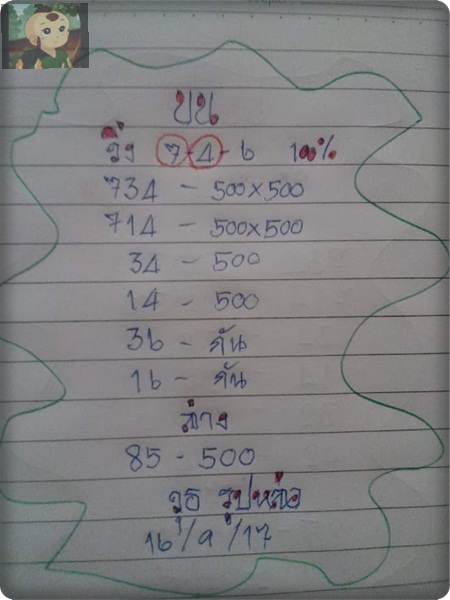 บน
วิ่ง 7-4-6 100%
734 - 500×500
714 - 500×500
34 - 500
14 - 500
36 - กัน
16 - กัน
ล่าง
85 - 500
วุธ รูปหล่อ
16/9/17